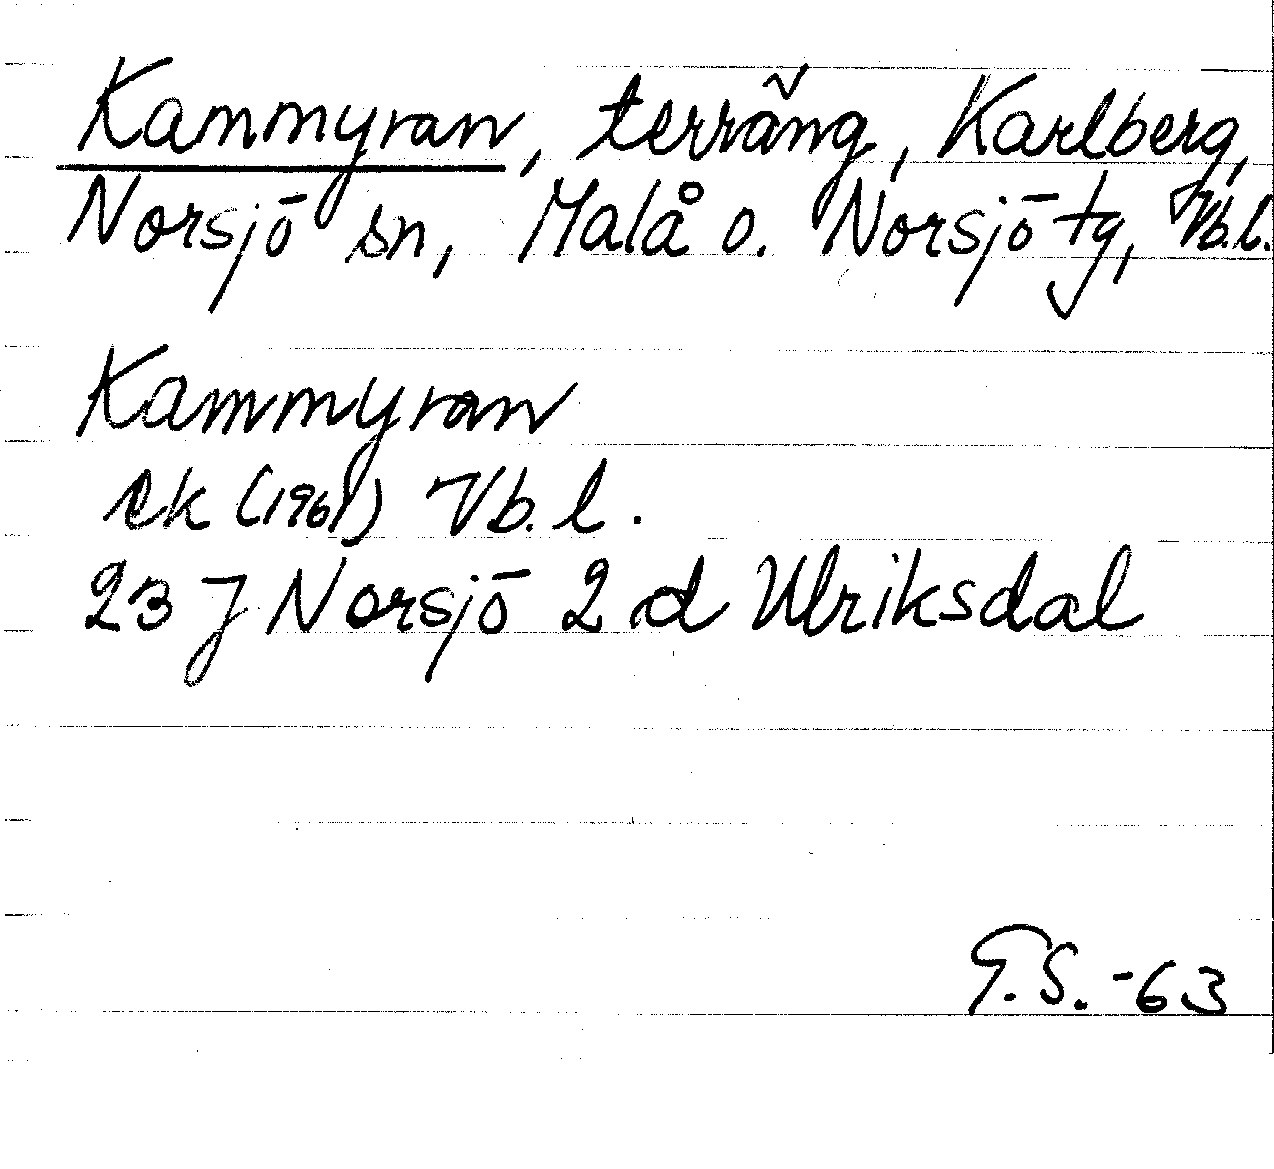 Kammyran, terräng, Karlberg,
Norsjö sn, Malå o. Norsjö tg, Vb.l.
Kammyran
ek (1961) Vb. l.
23 J Norsjö 2 d Ulriksdal
G.S. -63